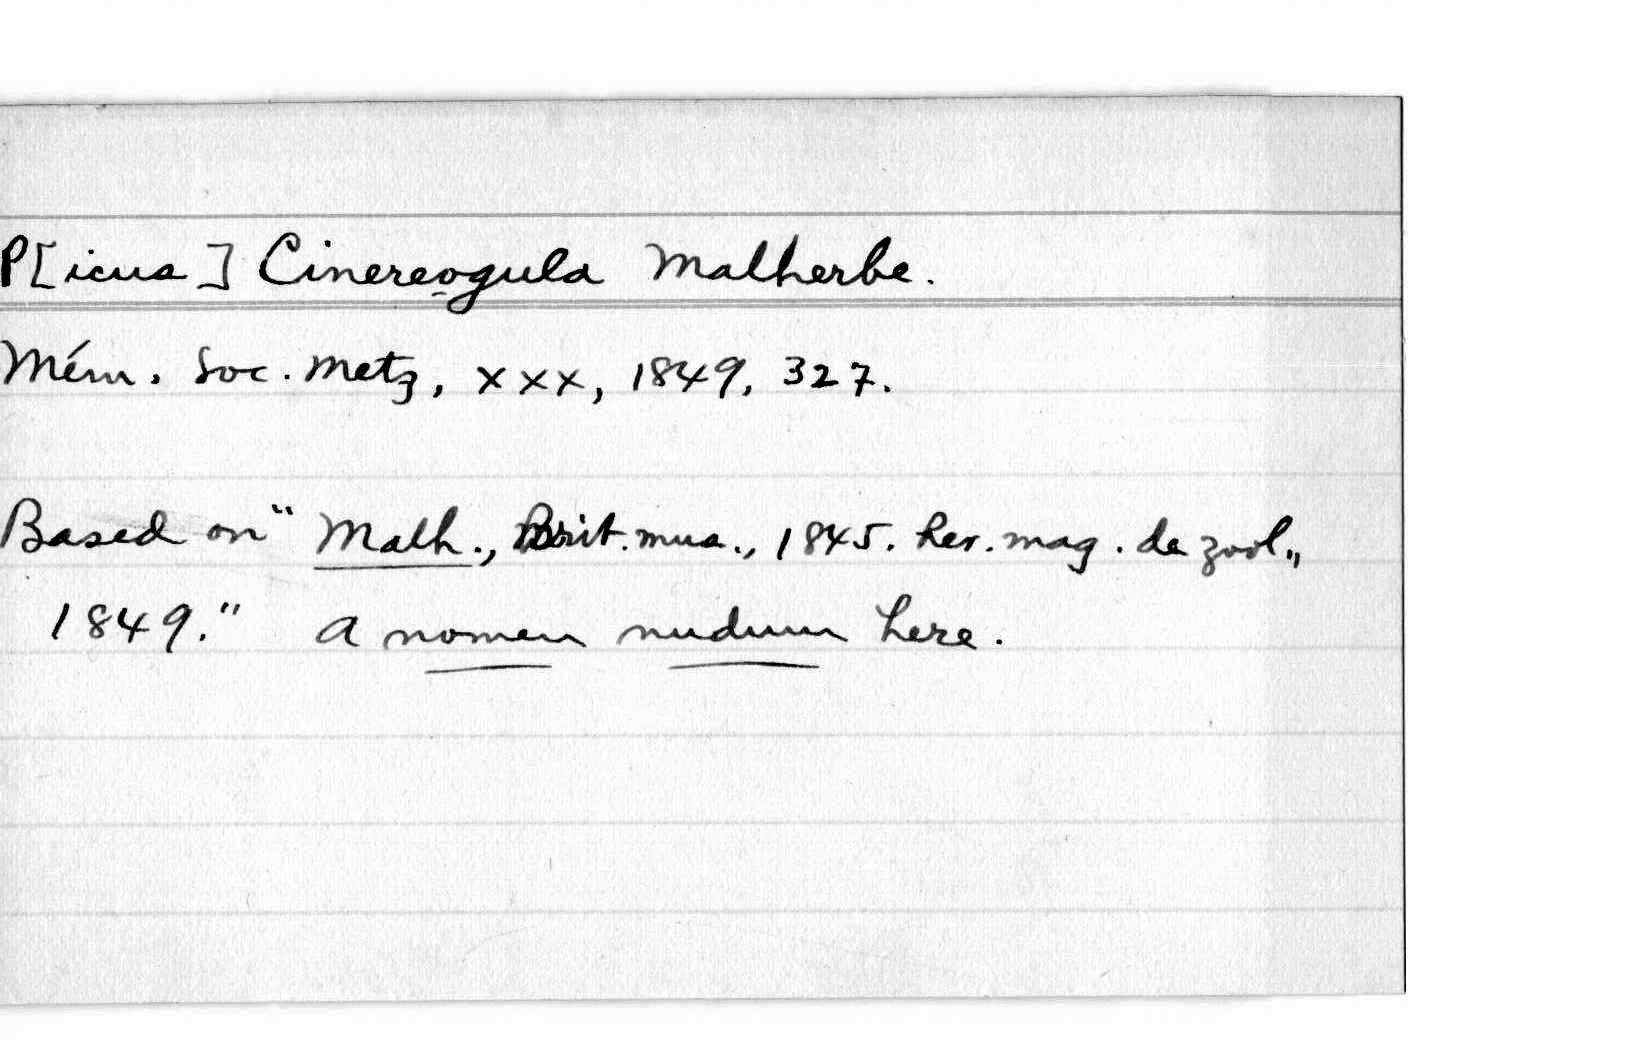 P[icus] Cinereogula Malherbe.
Mém. Soc. Metz, xxx, 1849, 327.
Based on "Malh., Brit. mus., 1845. Rev. mag. de zool.,
1849." A nomen nudum here.